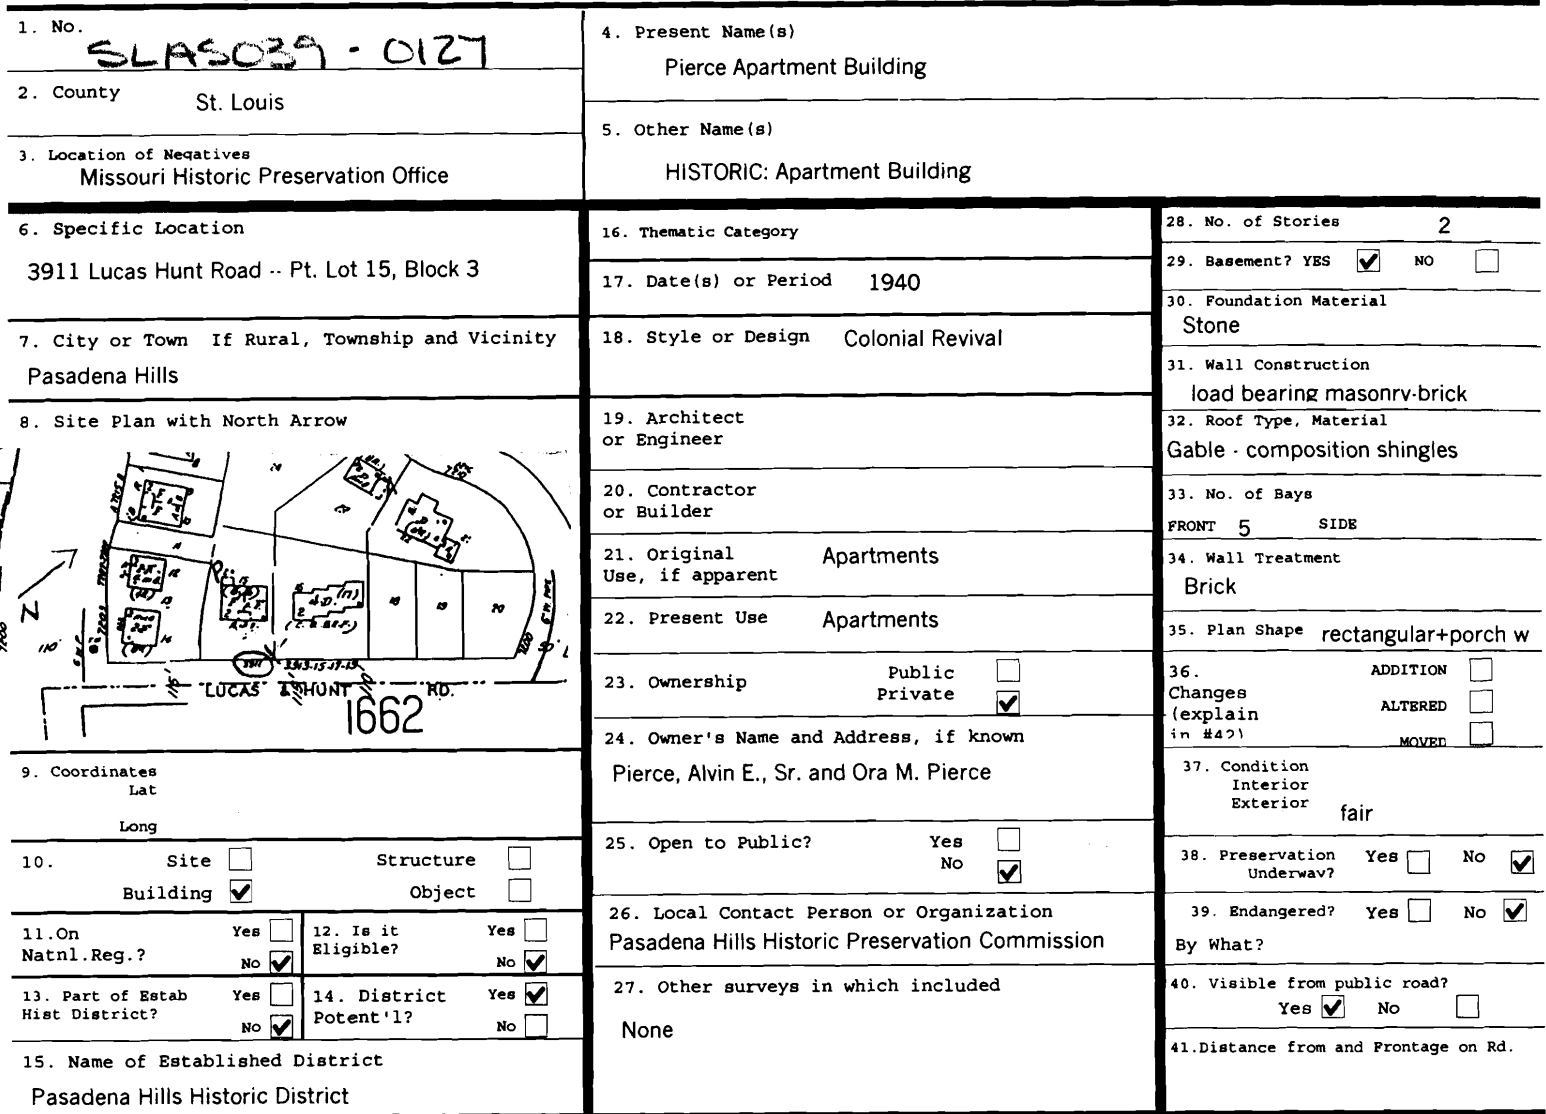 1. No.
SLAS039 - 0127
2. County
St. Louis
3. Location of Negatives
Missouri Historic Preservation Office
4. Present Name(s)
Pierce Apartment Building
5. Other Name(s)
HISTORIC: Apartment Building
6. Specific Location
3911 Lucas Hunt Road -- Pt. Lot 15, Block 3
7. City or Town If Rural, Township and Vicinity
Pasadena Hills
8. Site Plan with North Arrow
N
3911
3913-15-17-19
LUCAS & HUNT RD.
1662
9. Coordinates
Lat
Long
10. Site Structure
Building ✔ Object
11.On Yes
Natnl.Reg.? No ✔
12. Is it Yes
Eligible? No ✔
13. Part of Estab Yes
Hist District? No ✔
14. District Yes ✔
Potent'l? No
15. Name of Established District
Pasadena Hills Historic District
16. Thematic Category
17. Date(s) or Period 1940
18. Style or Design Colonial Revival
19. Architect
or Engineer
20. Contractor
or Builder
21. Original Apartments
Use, if apparent
22. Present Use Apartments
23. Ownership Public
Private ✔
24. Owner's Name and Address, if known
Pierce, Alvin E., Sr. and Ora M. Pierce
25. Open to Public? Yes
No ✔
26. Local Contact Person or Organization
Pasadena Hills Historic Preservation Commission
27. Other surveys in which included
None
28. No. of Stories 2
29. Basement? YES ✔ NO
30. Foundation Material
Stone
31. Wall Construction
load bearing masonry-brick
32. Roof Type, Material
Gable - composition shingles
33. No. of Bays
FRONT 5 SIDE
34. Wall Treatment
Brick
35. Plan Shape rectangular+porch w
36. ADDITION
Changes
(explain ALTERED
in #42) MOVED
37. Condition
Interior
Exterior fair
38. Preservation Yes No ✔
Underway?
39. Endangered? Yes No ✔
By What?
40. Visible from public road?
Yes ✔ No
41.Distance from and Frontage on Rd.